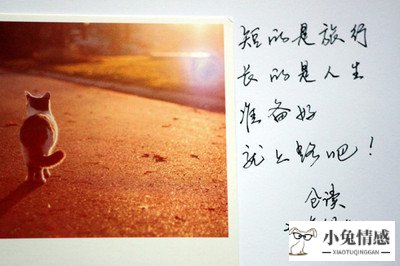 短的是旅行
长的是人生
准备好
就上路吧！
仓读
小兔情感
XIAOTUQINGGAN